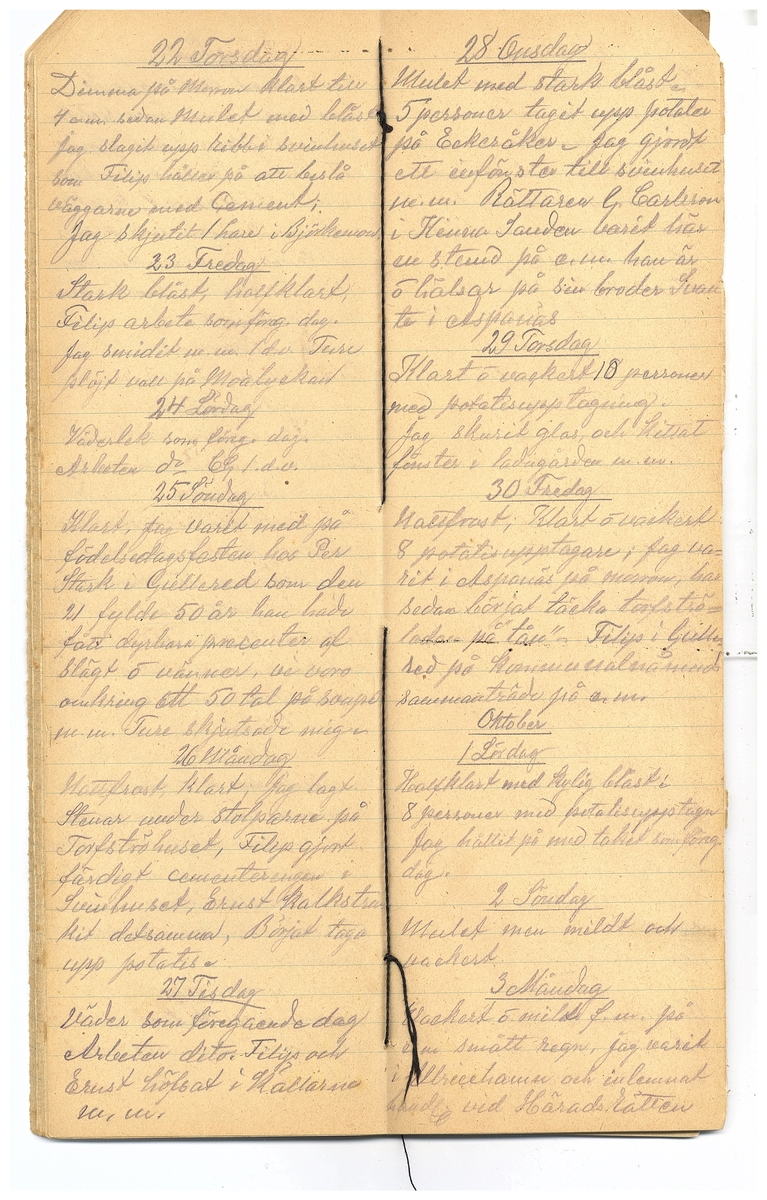 22 Torsdag
Dimma på Morron klart till
4 e.m. sedan Mulet med blåst
Jag slagit upp ribb i svinhuset
som Filip håller på att beslå
väggarne med Cement;
Jag skjutit 1 hare i Björkemon
23 Fredag
Stark blåst, halfklart,
Filip arbete som föng. dag.
Jag smidit m.m. 1 d.v Ture
plöjt vall på Moalyckan
24 Lördag
Väderlek som föng. dag.
Arbeten do 1.d.v.
25 Söndag
Klart, Jag varit med på
födelsedagsfesten hos Per
Stark i Gullered som den
21 fylde 50 år han hade
fått dyrbara presenter af
slägt o vänner, vi voro
omkring ett 50 tal på soupé
m.m. Ture skjutsade mig
26 Måndag
Nattfrost, klart, Jag lagt
Stenar under stolparne på
Torfströhuset, Filip gjort
färdigt cementeringen i
Svinhuset, Ernst Kalkstru
kit detsamma, Börjat taga
upp potatis
27 Tisdag
Väder som föregående dag
Arbeten dito. Filip och
Ernst höfsat i Källarne
m.m.
28 Onsdag
Mulet med stark blåst
5 personer tagit upp potater
på Eckeråker Jag gjordt
ett infönster till svinhuset
m.m. Rättaren G. Carlsson
i Sanden varit här
en stund på e.m. han är
o hälsar på sin broder Svan
te i Aspanäs
29 Torsdag
Klart o vackert 10 personer
med potatisupptagning.
Jag skurit glas och kitsat
fönster i ladugården m.m.
30 Fredag
Nattfrost, Klart o vackert
8 potatisupptagare, Jag va-
rit i Aspanäs på morron, har
sedan börjat täcka torfströ=
ladan på "tån" Filip i Gulle
red på Kommunalnämnds
sammanträde på e.m.
Oktober
1 Lördag
Halfklart med kylig blåst
8 personer med potatisupptagn
Jag hållit på med taket som föng.
dag.
2 Söndag
Mulet men mildt och
vackert
3 Måndag
Vackert o mildt f.m. på
e.m smått regn, Jag varit
i Ulricehamn och inlemnat
vid Härads Rätten